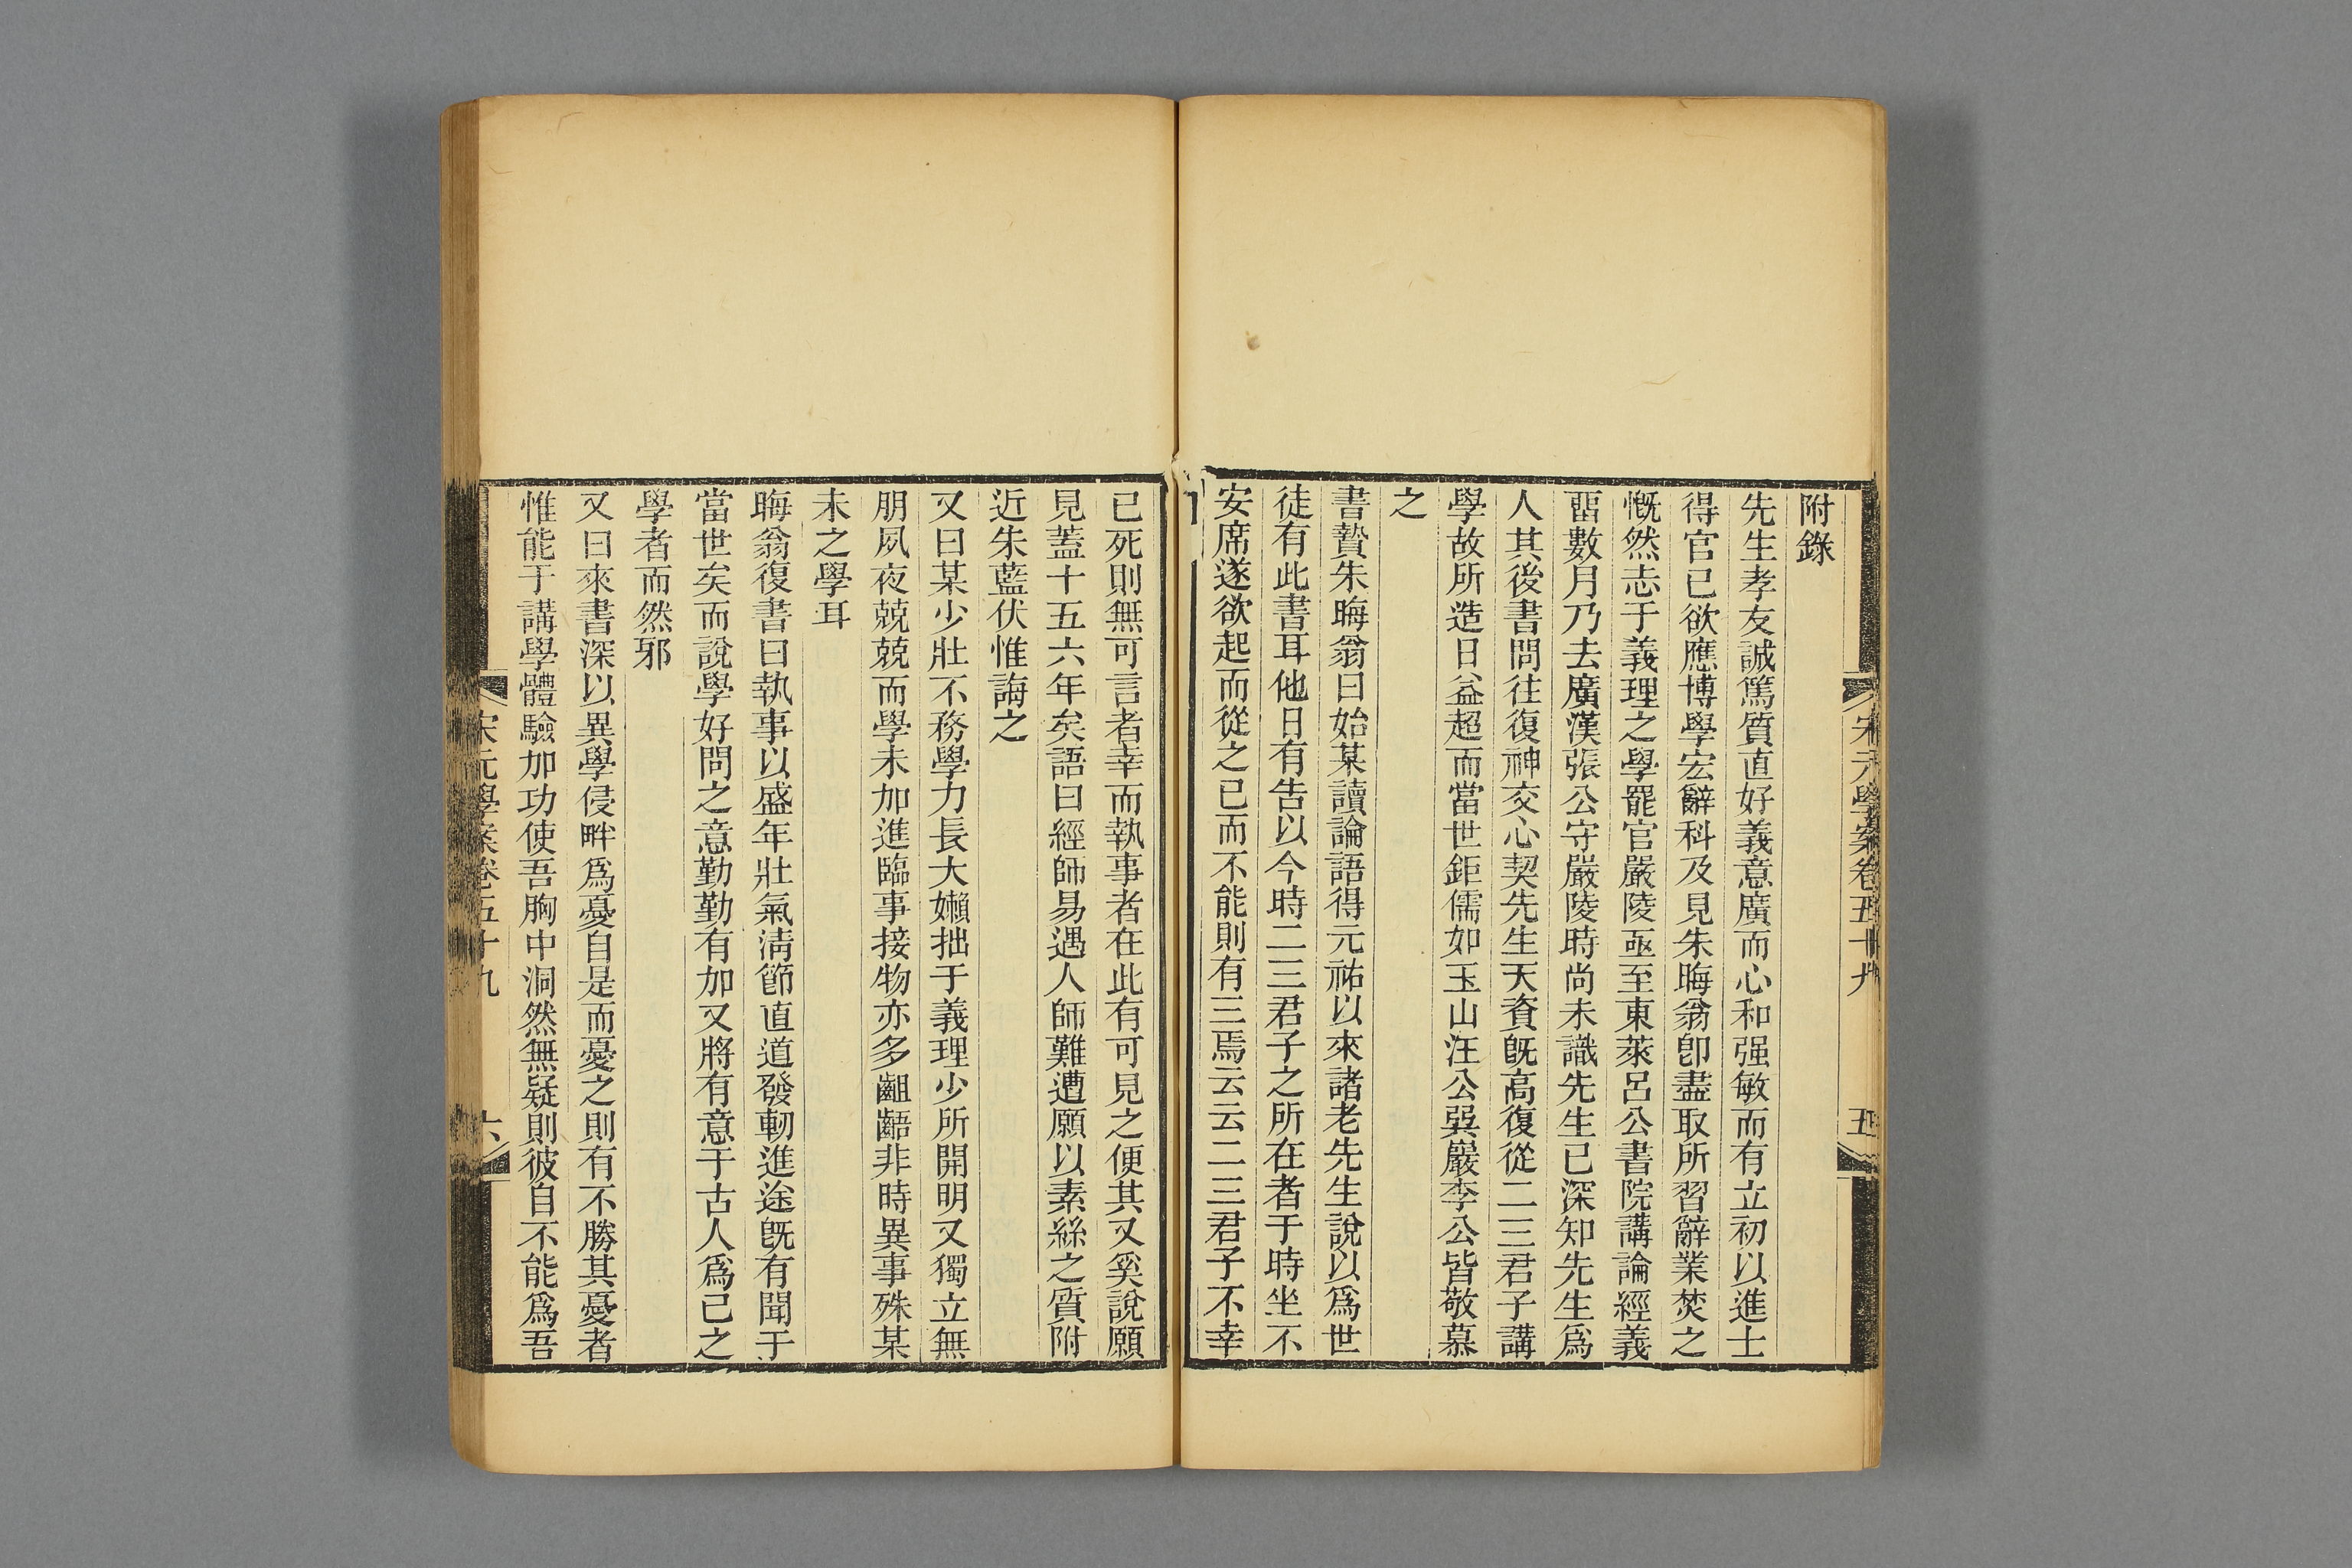 宋元學案卷五十九
五
附錄
先生孝友誠篤質直好義意廣而心和强敏而有立初以進士
得官已欲應博學宏辭科及見朱晦翁卽盡取所習辭業焚之
慨然志于義理之學罷官嚴陵亟至東萊呂公書院講論經義
畱數月乃去廣漢張公守嚴陵時尚未識先生已深知先生爲
人其後書問往復神交心契先生天資旣高復從二三君子講
學故所造日益超而當世鉅儒如玉山汪公巽巖李公皆敬慕
之
書贄朱晦翁曰始某讀論語得元祐以來諸老先生說以爲世
徒有此書耳他日有告以今時二三君子之所在者于時坐不
安席遂欲起而從之已而不能則有三焉云云二三君子不幸
已死則無可言者幸而執事者在此有可見之便其又奚說願
見蓋十五六年矣語曰經師易遇人師難遭願以素絲之質附
近朱藍伏惟誨之
又曰某少壯不務學力長大嬾拙于義理少所開明又獨立無
朋夙夜兢兢而學未加進臨事接物亦多齟齬非時異事殊某
未之學耳
晦翁復書曰執事以盛年壯氣淸節直道發軔進途旣有聞于
當世矣而說學好問之意勤勤有加又將有意于古人爲己之
學者而然邪
又曰來書深以異學侵畔爲憂自是而憂之則有不勝其憂者
惟能于講學體驗加功使吾胸中洞然無疑則彼自不能爲吾
宋元學案卷五十九
六